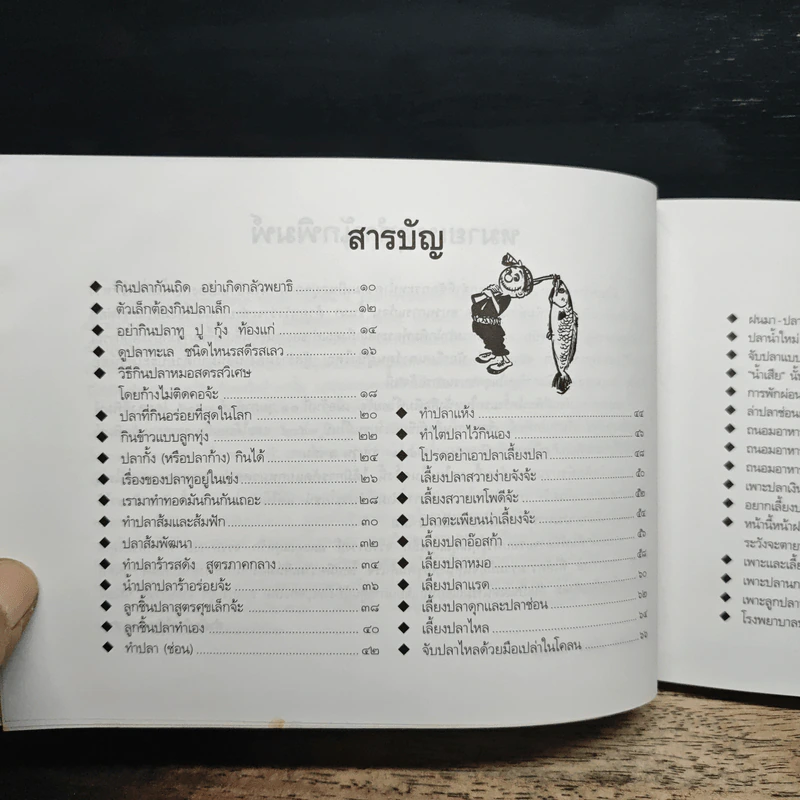 สารบัญ
กินปลากันเถิด อย่าเกิดกลัวพยาธิ ๑๐
ตัวเล็กต้องกินปลาเล็ก ๑๒
อย่ากินปลาทู ปู กุ้ง ท้องแก่ ๑๔
ดูปลาทะเล ชนิดไหนรสดีรสเลว ๑๖
วิธีกินปลาหมอสดรสวิเศษ
โดยก้างไม่ติดคอจ้ะ ๑๘
ปลาที่กินอร่อยที่สุดในโลก ๒๐
กินข้าวแบบลูกทุ่ง ๒๒
ปลากั้ง (หรือปลาก้าง) กินได้ ๒๔
เรื่องของปลาทูอยู่ในเข่ง ๒๖
เรามาทำทอดมันกินกันเถอะ ๒๘
ทำปลาส้มและส้มฟัก ๓๐
ปลาส้มพัฒนา ๓๒
ทำปลาร้ารสดัง สูตรภาคกลาง ๓๔
น้ำปลาปลาร้าอร่อยจ้ะ ๓๖
ลูกชิ้นปลาสูตรศุขเล็กจ้ะ ๓๘
ลูกชิ้นปลาทำเอง ๔๐
ทำปลา (ช่อน) ๔๒
ทำปลาแห้ง ๔๔
ทำไตปลาไว้กินเอง ๔๖
โปรดอย่าเอาปลาเลี้ยงปลา ๔๘
เลี้ยงปลาสวายง่ายจังจ้ะ ๕๐
เลี้ยงสวายเทโพดีจ้ะ ๕๒
ปลาตะเพียนน่าเลี้ยงจ้ะ ๕๔
เลี้ยงปลาอ๊อสก้า ๕๖
เลี้ยงปลาหมอ ๕๘
เลี้ยงปลาแรด ๖๐
เลี้ยงปลาดุกและปลาช่อน ๖๒
เลี้ยงปลาไหล ๖๔
จับปลาไหลด้วยมือเปล่าในโคลน ๖๖
ฝนมา - ปลา
ปลาน้ำใหม่
จับปลาแบบ
"น้ำเสีย" นั้
การพักผ่อน
ล่าปลาช่อน
ถนอมอาหาร
ถนอมอาหาร
ถนอมอาหาร
เพาะปลาเงิน
อยากเลี้ยงป
หน้านี้หน้าฝ
ระวังจะตาย
เพาะและเลี้ย
เพาะปลานก
เพาะลูกปลา
โรงพยาบาล